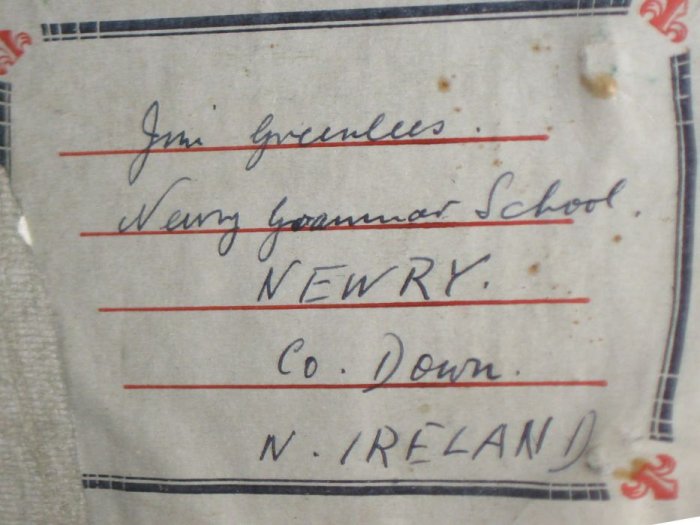 Jim Greenlees.
Newry Grammar School.
NEWRY.
Co. Down.
N. IRELAND